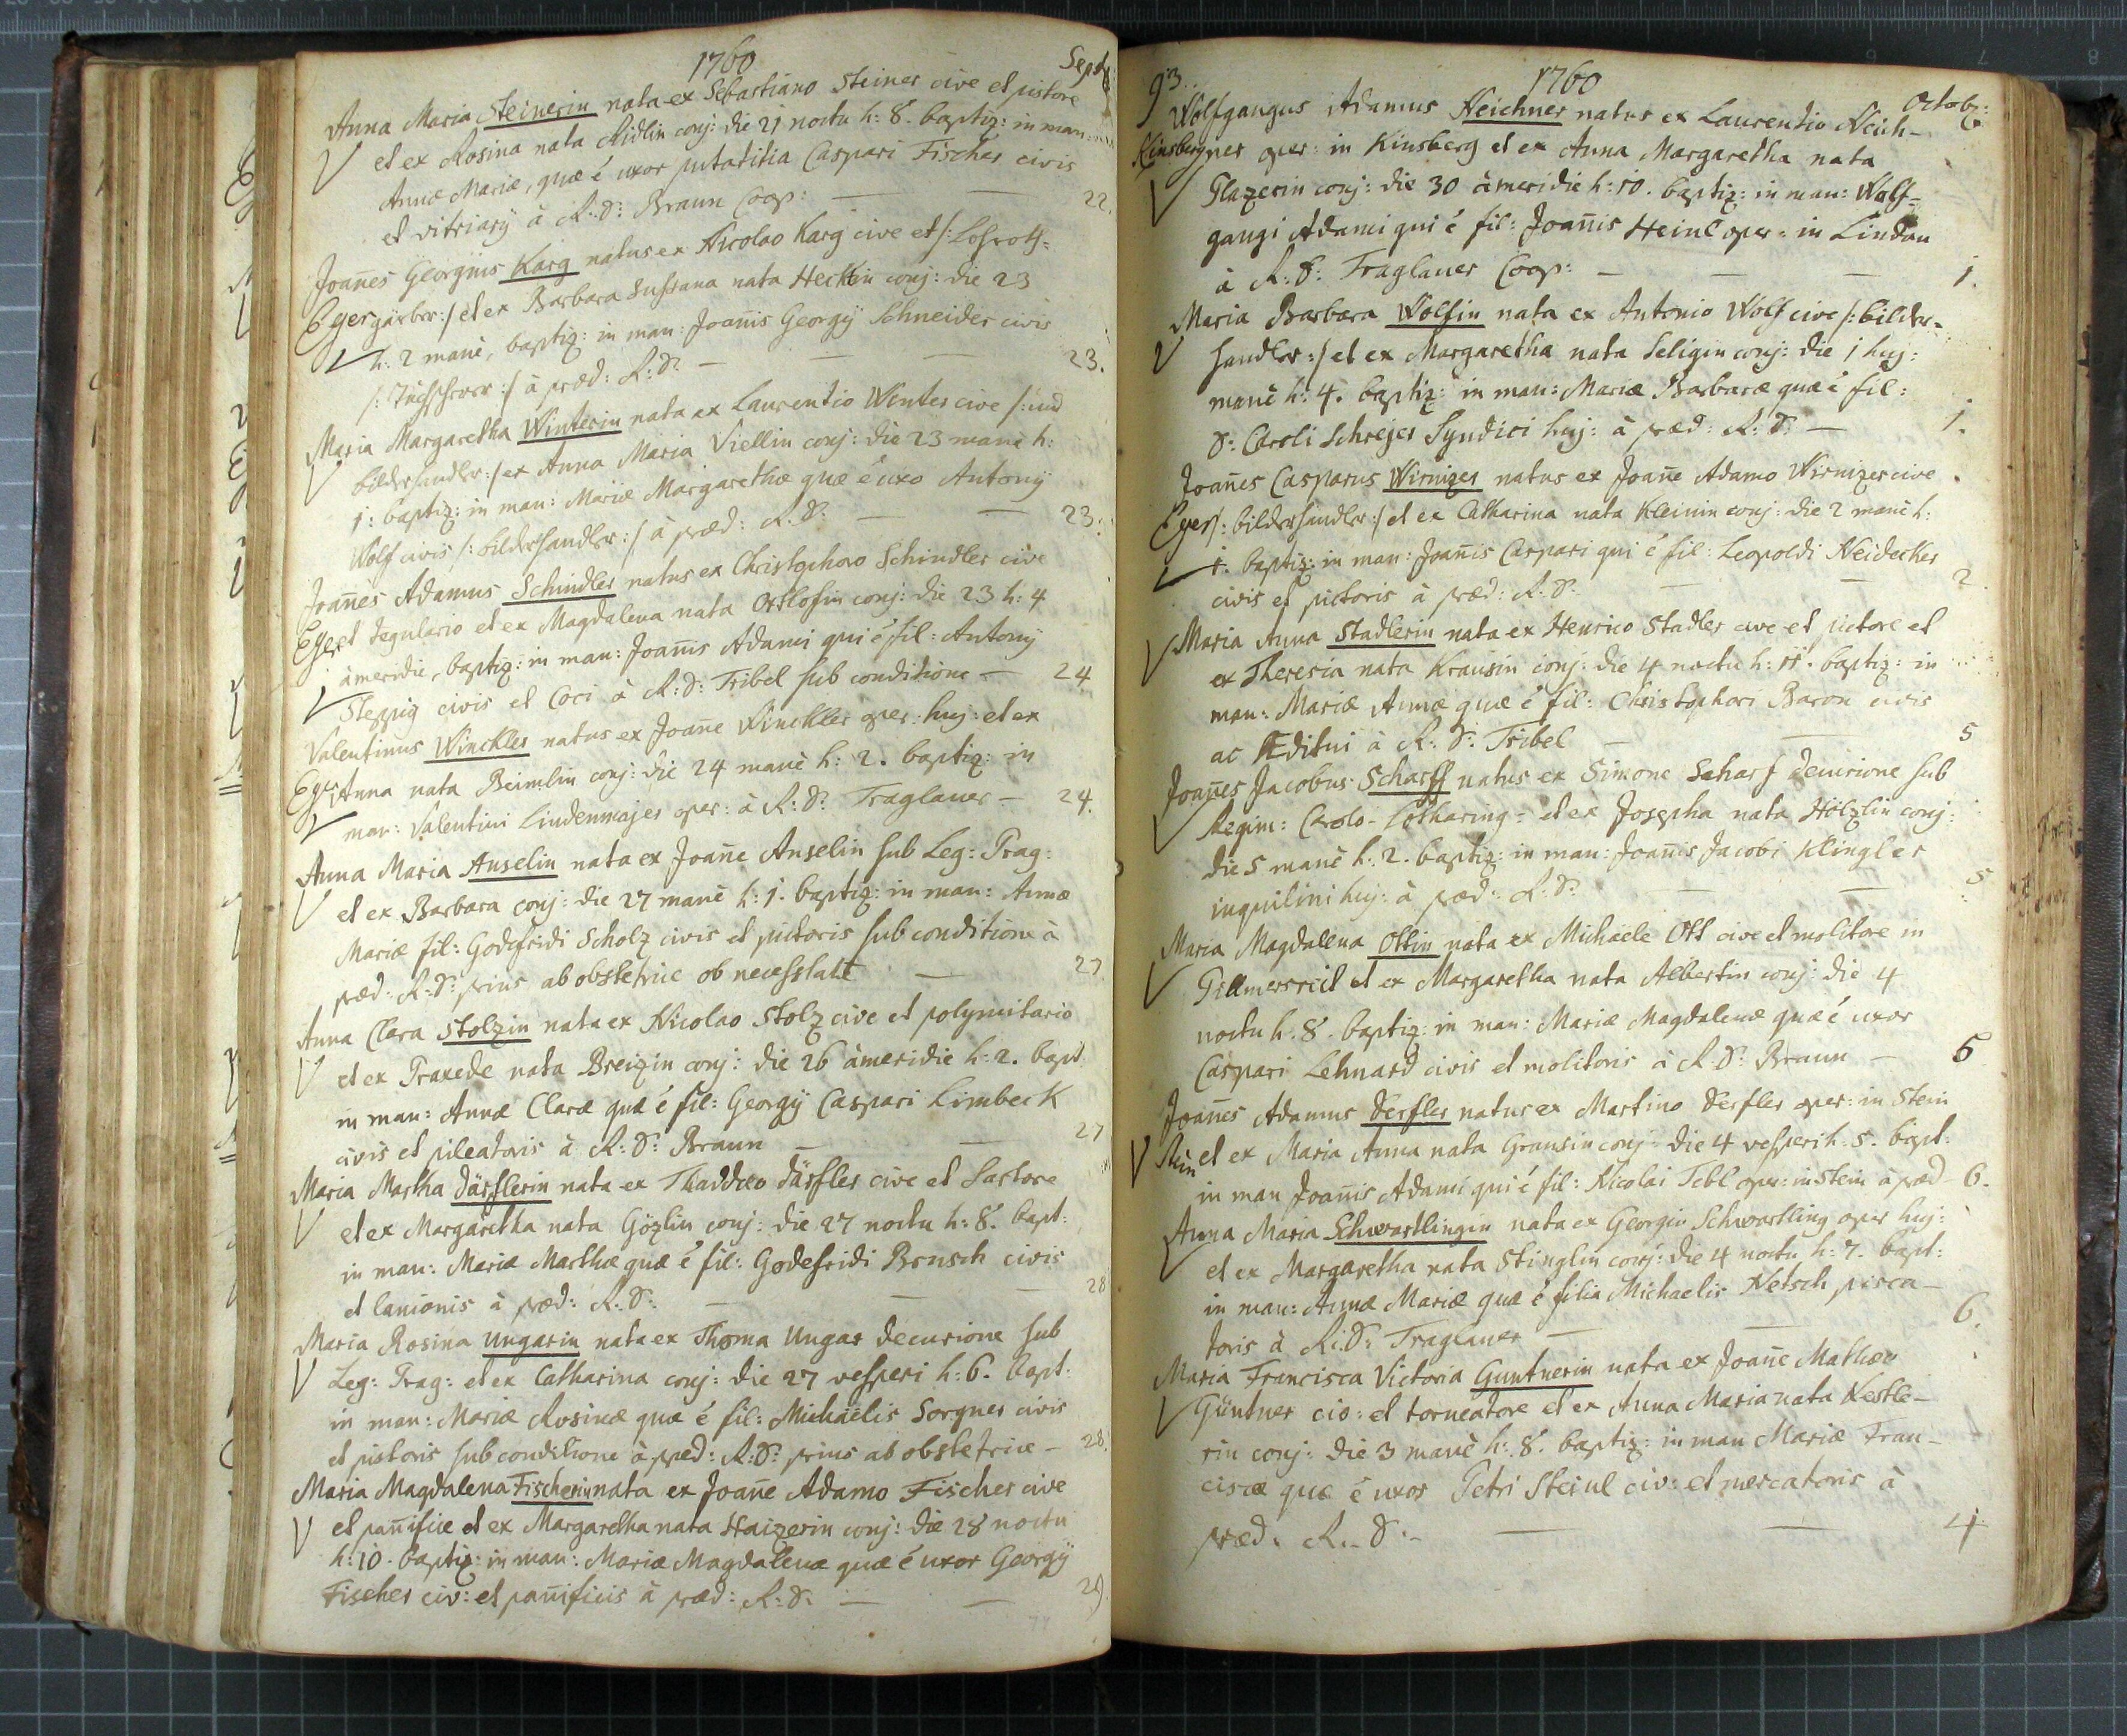 1760
Septb:
Anna Maria Steinerin nata ex Sebastiano Steiner cive et pistore
et ex Rosina nata Ridlin conj: die 21 noctu h: 8. baptiz: in man:
Annæ Mariæ, quæ ē uxor putatitia Caspari Fischer civis
et vitriarÿ à R: D: Braun Coop: — — 22.
Joan̄es Georgius Karg natus ex Nicolao Karg cive et /: Lohroth=
Eger gärber :/ et ex Barbara Susana nata Heckin conj: die 23
h: 2 manè, baptiz: in man: Joan̄is Georgÿ Schneider civis
/: :/ à præd: R: D: — — — 23.
Maria Margaretha Winterin nata ex Laurentio Winter cive /: und
bilderhandler :/ ex Anna Maria Viellin conj: die 23 manè h:
1: baptiz: in man: Mariæ Margarethæ quæ ē uxo Antonÿ
Wolf civis /: bilderhandler :/ à præd: R: D: — — 23.
Joan̄es Adamus Schindler natus ex Christophoro Schindler cive
Eger et tegulario et ex Magdalena nata conj: die 23 h: 4
àmeridie, baptiz: in man: Joan̄is Adami qui ē fil: Antonÿ
Steppig civis et Coci à R: D: Tribel sub conditione — 24.
Valentinus Winckler natus ex Joan̄e Winckler oper: huj: et ex
Eger Anna nata Beimlin conj: die 24 manè h: 2. baptiz: in
man: Valentini Lindenmajer oper: à R: D: Traglauer — 24.
Anna Maria Anselin nata ex Joan̄e Anselin sub Leg: Prag:
et ex Barbara conj: die 27 manè h: 1. baptiz: in man: Annæ
Mariæ fil: Godefridi Scholz civis et pictoris sub conditione à
præd: R: D: prius ab obstetrice ob necessitatē — 27
Anna Clara Stolzin nata ex Nicolao Stolz cive et polymitario
et ex Praxede nata Breizin conj: die 26 àmeridie h: 2. bapt:
in man: Annæ Claræ quæ ē fil: Georgÿ Caspari Limbeck
civis et pileatoris à R: D: Braun — — 27
Maria Martha därflerin nata ex Thaddæo därfler cive et sartore
et ex Margaretha nata Gözlin conj: die 27 noctu h: 8. bapt:
in man: Mariæ Marthæ quæ ē fil: Godefridi Brusch civis
et lanionis à præd: R: D: — — — 28
Maria Rosina Ungarin nata ex Thoma Ungar decurione sub
Leg: Prag: et ex Catharina conj: die 27 vesperi h: 6. bapt:
in man: Mariæ Rosinæ quæ ē fil: Michäelis Sorgner civis
et pistoris sub conditione à præd: R: D: prius ab obstetrice — 28.
Maria Magdalena Fischerin nata ex Joan̄e Adamo Fischer cive
et pan̄ifice et ex Margaretha nata Haizerin conj: die 28 noctu
h: 10. baptiz: in man: Mariæ Magdalenæ quæ ē uxor Georgÿ
Fischer civ: et pan̄ificis à præd: R: D: — — 29.
93.
1760
Octob:
Wolfgangus Adamus Neichner natus ex Laurentio Neich-
Kinsberg ner oper: in Kinsberg et ex Anna Margaretha nata
Glazerin conj: die 30 àmeridie h: 10. baptiz: in man: Wolf=
gangi Adami qui ē fil: Joan̄is Heinl oper: in Lindau
à R: D: Traglauer Coop: — — — 1.
Maria Barbara Wolfin nata ex Antonio Wolf cive /: bilder=
handler :/ et ex Margaretha nata Seligin conj: die 1 huj:
manè h: 4. baptiz: in man: Mariæ Barbaræ quæ ē fil:
D: Caroli Schrejer Syndici huj: à præd: R: D: — 1.
Joan̄es Casparus Wirnizer natus ex Joan̄e Adamo Wirnizer cive
Eger /: bilderhandler :/ et ex Catharina nata Kleinin conj: die 2 manè h:
1. baptiz: in man: Joan̄is Caspari qui ē fil: Leopoldi Neidecker
civis et pictoris à præd: R: D: — — 2
Maria Anna Stadlerin nata ex Henrico Stadler cive et pictore et
ex Theresia nata Krausin conj: die 4 noctu h: 11. baptiz: in
man: Mariæ Annæ quæ ē fil: Christophori Baron civis
ac Æditui à R: D: Tribel — — 5
Joan̄es Jacobus Scharff natus ex Simone Scharf decurione sub
Regim: Carolo-Lotharing= et ex Josepha nata Hölzlin conj:
die 5 manè h: 2. baptiz: in man: Joan̄is Jacobi Klingler
inquilini huj: à præd: R: D: — — 5
Maria Magdalena Ottin nata ex Michaële Ott cive et molitore in
Tillmersreit et ex Margaretha nata Albertin conj: die 4
noctu h: 8. baptiz: in man: Mariæ Magdalenæ quæ ē uxor
Caspari Lehnard civis et molitoris à R: D: Braun — 6
Joan̄es Adamus Derfler natus ex Martino Derfler oper: in Stein
Stein et ex Maria Anna nata Grausin conj: die 4 vesperi h: 5. bapt:
in man Joan̄is Adami qui ē fil: Nicolai Tebl oper: in Stein à præd — 6.
Anna Maria Schwartlingin nata ex Georgio Schwartling oper huj:
et ex Margaretha nata Stinglin conj: die 4 noctu h: 7. bapt:
in man: Annæ Mariæ quæ ē filia Michaelis Netsch pisca-
toris à R: D: Traglauer — — 6.
Maria Francisca Victoria Guntnerin nata ex Joan̄e Mathæo
Güntner civ: et torneatore et ex Anna Maria nata Kestle-
rin conj: die 3 manè h: 8. baptiz: in man Mariæ Fran-
ciscæ quæ ē uxor Petri Steinl civ: et mercatoris à
præd. R: D: — — 4